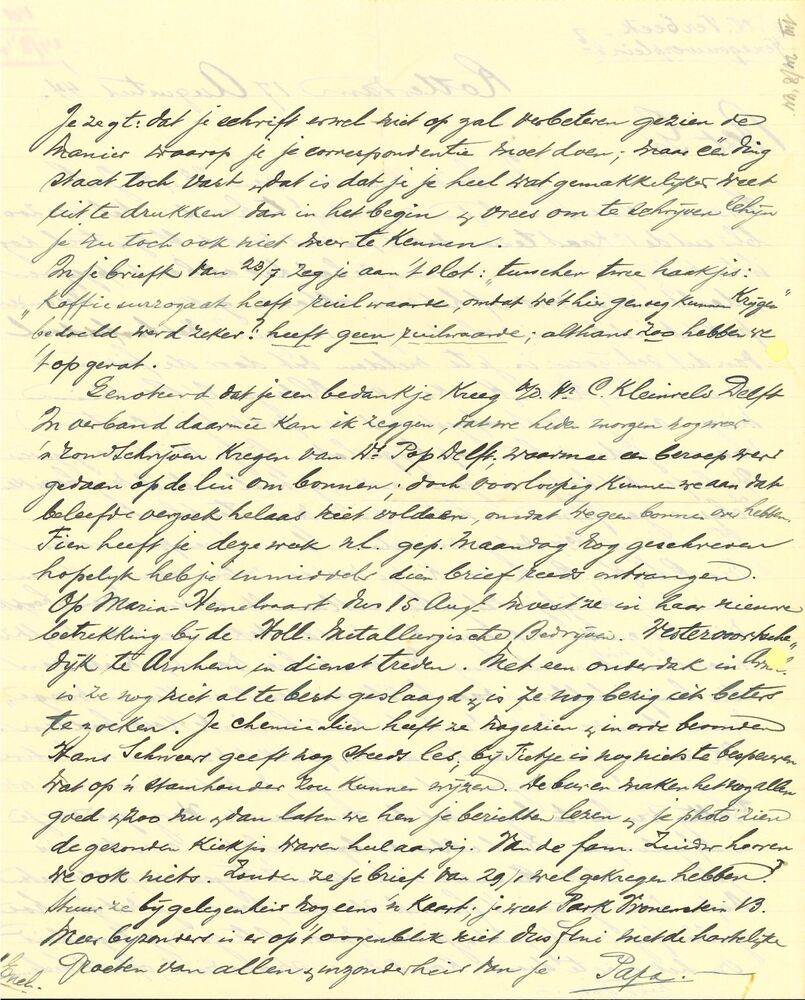 III 24/8 '44
Je zegt: dat je schrift er wel niet op zal verbeteren gezien de
manier waarop je je correspondentie moet doen; maar één ding
staat toch vast, dat is dat je je heel wat gemakkelijker weet
uit te drukken dan in het begin & vrees om te schrijven schijn
je nu toch ook niet meer te kennen.
In je brief van 23/7 zeg je aan 't slot: "tusschen twee haakjes:
"Koffiesurrogaat heeft ruilwaarde, omdat we 't hier genoeg kunnen krijgen"
bedoeld werd zeker! heeft geen ruilwaarde; althans zoo hebben we
't opgevat.
Genoteerd dat je een bedankje kreeg v/d. Hr C. Delft
In verband daarmee kan ik zeggen, dat we heden morgen nog weer
'n rondschrijven kregen van Ds. Pop Delft, waarmee een beroep werd
gedaan op de lui om bonnen; doch voorloopig kunnen we aan dat
beleefde verzoek helaas niet voldoen, omdat we geen bonnen over hebben.
Tien heeft je deze week n.l. gep. Maandag nog geschreven
hopelijk heb je inmiddels dien brief reeds ontvangen.
Op Maria-Hemelvaart dus 15 Augt moest ze in haar nieuwe
betrekking bij de Holl. Metallurgische Bedrijven. Westervoortsche
dijk te Arnhem in dienst treden. Met een onderdak in
is ze nog niet al te best geslaagd & is ze nog bezig iets beters
te zoeken. Je chemicalien heeft ze nagezien & in orde bevonden
Hans Schweers geeft nog steeds les, bij Tietje is nog niets te bespeuren
wat op 'n stamhouder zou kunnen wijzen. De buren maken het nog allen
goed & zoo nu & dan laten we hen je berichten lezen & je photo zien
de gezonden kiekjes waren heel aardig. Van de fam. hooren
we ook niets. Zouden ze je brief van 29/ wel gekregen hebben?
stuur ze bij gelegenheid nog eens 'n kaart; je weet Park Vronestein 13.
Meer bijzonders is er op 't oogenblik niet dus met de hartelijke
Groeten van allen & inzonderheid van je Papa.